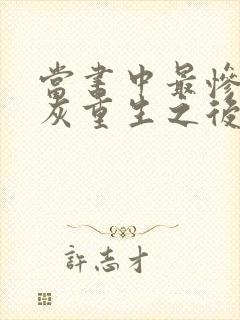 當書中最慘
灰重生之後
許志才